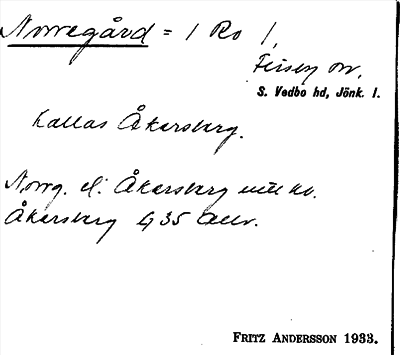 Norregård = 1 Ro /,
Flisby sn.
S. Vedbo hd, Jönk. l.
Kallas Åkersberg.
Norrg. el. Åkersberg
Åkersberg G 35
FRITZ ANDERSSON 1933.